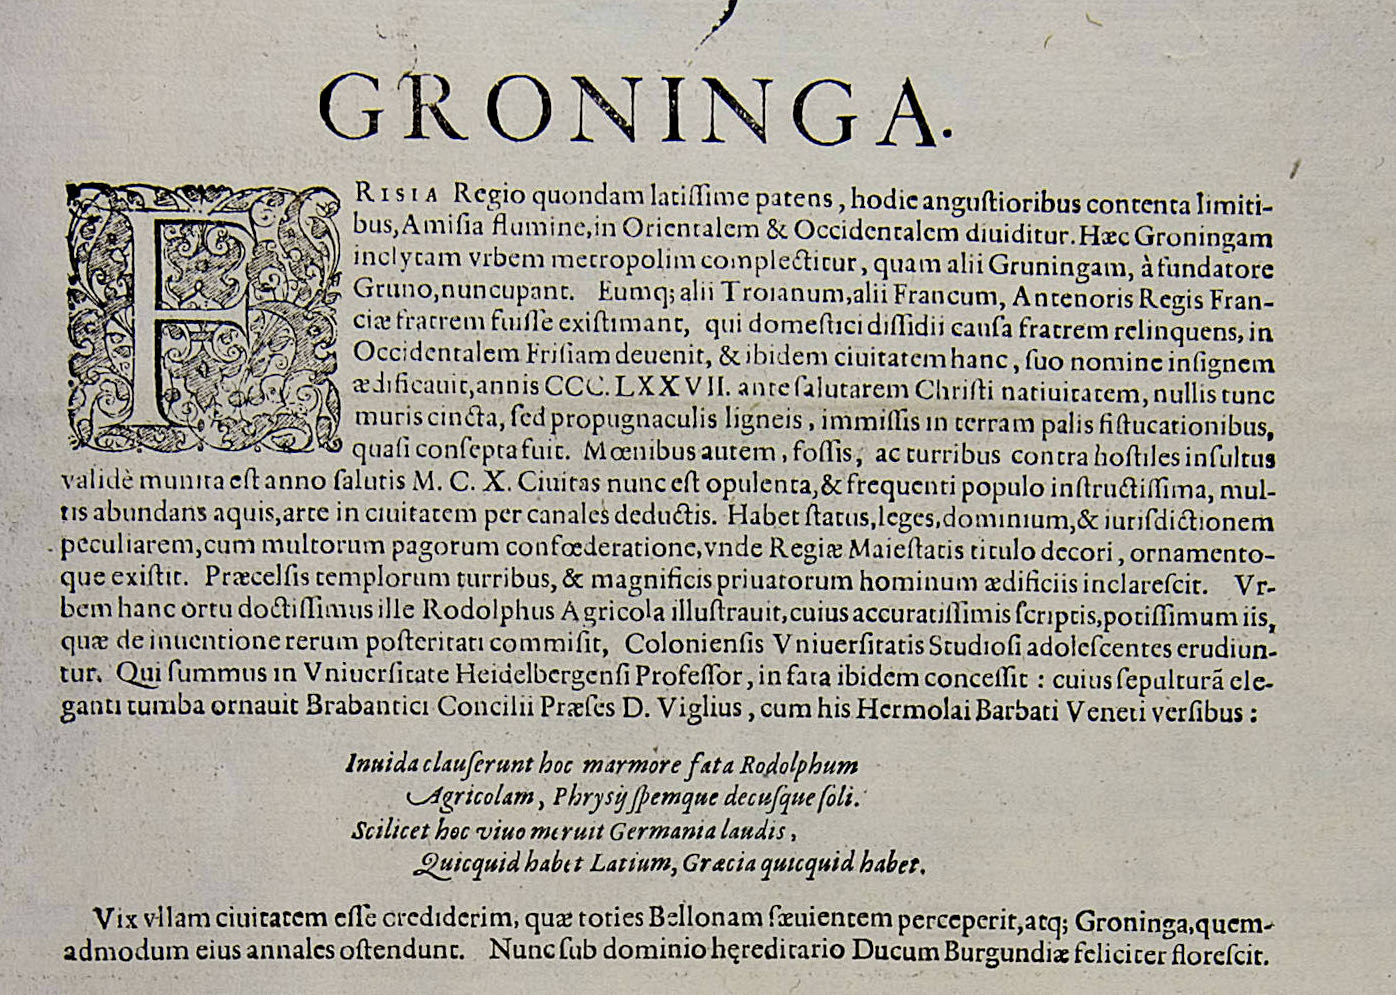 GRONINGA.
FRISIA Regio quondam latiſſime patens, hodie anguſtioribus contenta limiti-
bus, Amiſia flumine, in Orientalem & Occidentalem diuiditur. Hæc Groningam
inclytam vrbem metropolim complectitur, quam alii Gruningam, à fundatore
Gruno, nuncupant. Eumq; alii Troianum, alii Francum, Antenoris Regis Fran-
ciæ fratrem fuiſſe exiſtimant, qui domeſtici diſſidii cauſa fratrem relinquens, in
Occidentalem Friſiam deuenit, & ibidem ciuitatem hanc, ſuo nomine inſignem
ædificauit, annis CCC. LXXVII. ante ſalutarem Chriſti natiuitatem, nullis tunc
muris cincta, ſed propugnaculis ligneis, immiſſis in terram palis fiſtucationibus,
quaſi conſepta fuit. Mœnibus autem, foſſis, ac turribus contra hoſtiles inſultus
validè munita eſt anno ſalutis M. C. X. Ciuitas nunc eſt opulenta, & frequenti populo inſtructiſſima, mul-
tis abundans aquis, arte in ciuitatem per canales deductis. Habet ſtatus, leges, dominium, & iuriſdictionem
peculiarem, cum multorum pagorum confœderatione, vnde Regiæ Maieſtatis titulo decori, ornamento-
que exiſtit. Præcelſis templorum turribus, & magnificis priuatorum hominum ædificiis inclareſcit. Vr-
bem hanc ortu doctiſſimus ille Rodolphus Agricola illuſtrauit, cuius accuratiſſimis ſcriptis, potiſſimum iis,
quæ de inuentione rerum poſteritati commiſit, Colonienſis Vniuerſitatis Studioſi adoleſcentes erudiun-
tur. Qui ſummus in Vniuerſitate Heidelbergenſi Profeſſor, in fata ibidem conceſſit : cuius ſepulturã ele-
ganti tumba ornauit Brabantici Concilii Præſes D. Viglius, cum his Hermolai Barbati Veneti verſibus :
Inuida clauſerunt hoc marmore fata Rodolphum
Agricolam, Phryſij ſpemque decuſque ſoli.
Scilicet hoc viuo meruit Germania laudis,
Quicquid habet Latium, Græcia quicquid habet.
Vix vllam ciuitatem eſſe crediderim, quæ toties Bellonam ſæuientem perceperit, atq; Groninga, quem-
admodum eius annales oſtendunt. Nunc ſub dominio hęreditario Ducum Burgundiæ feliciter floreſcit.